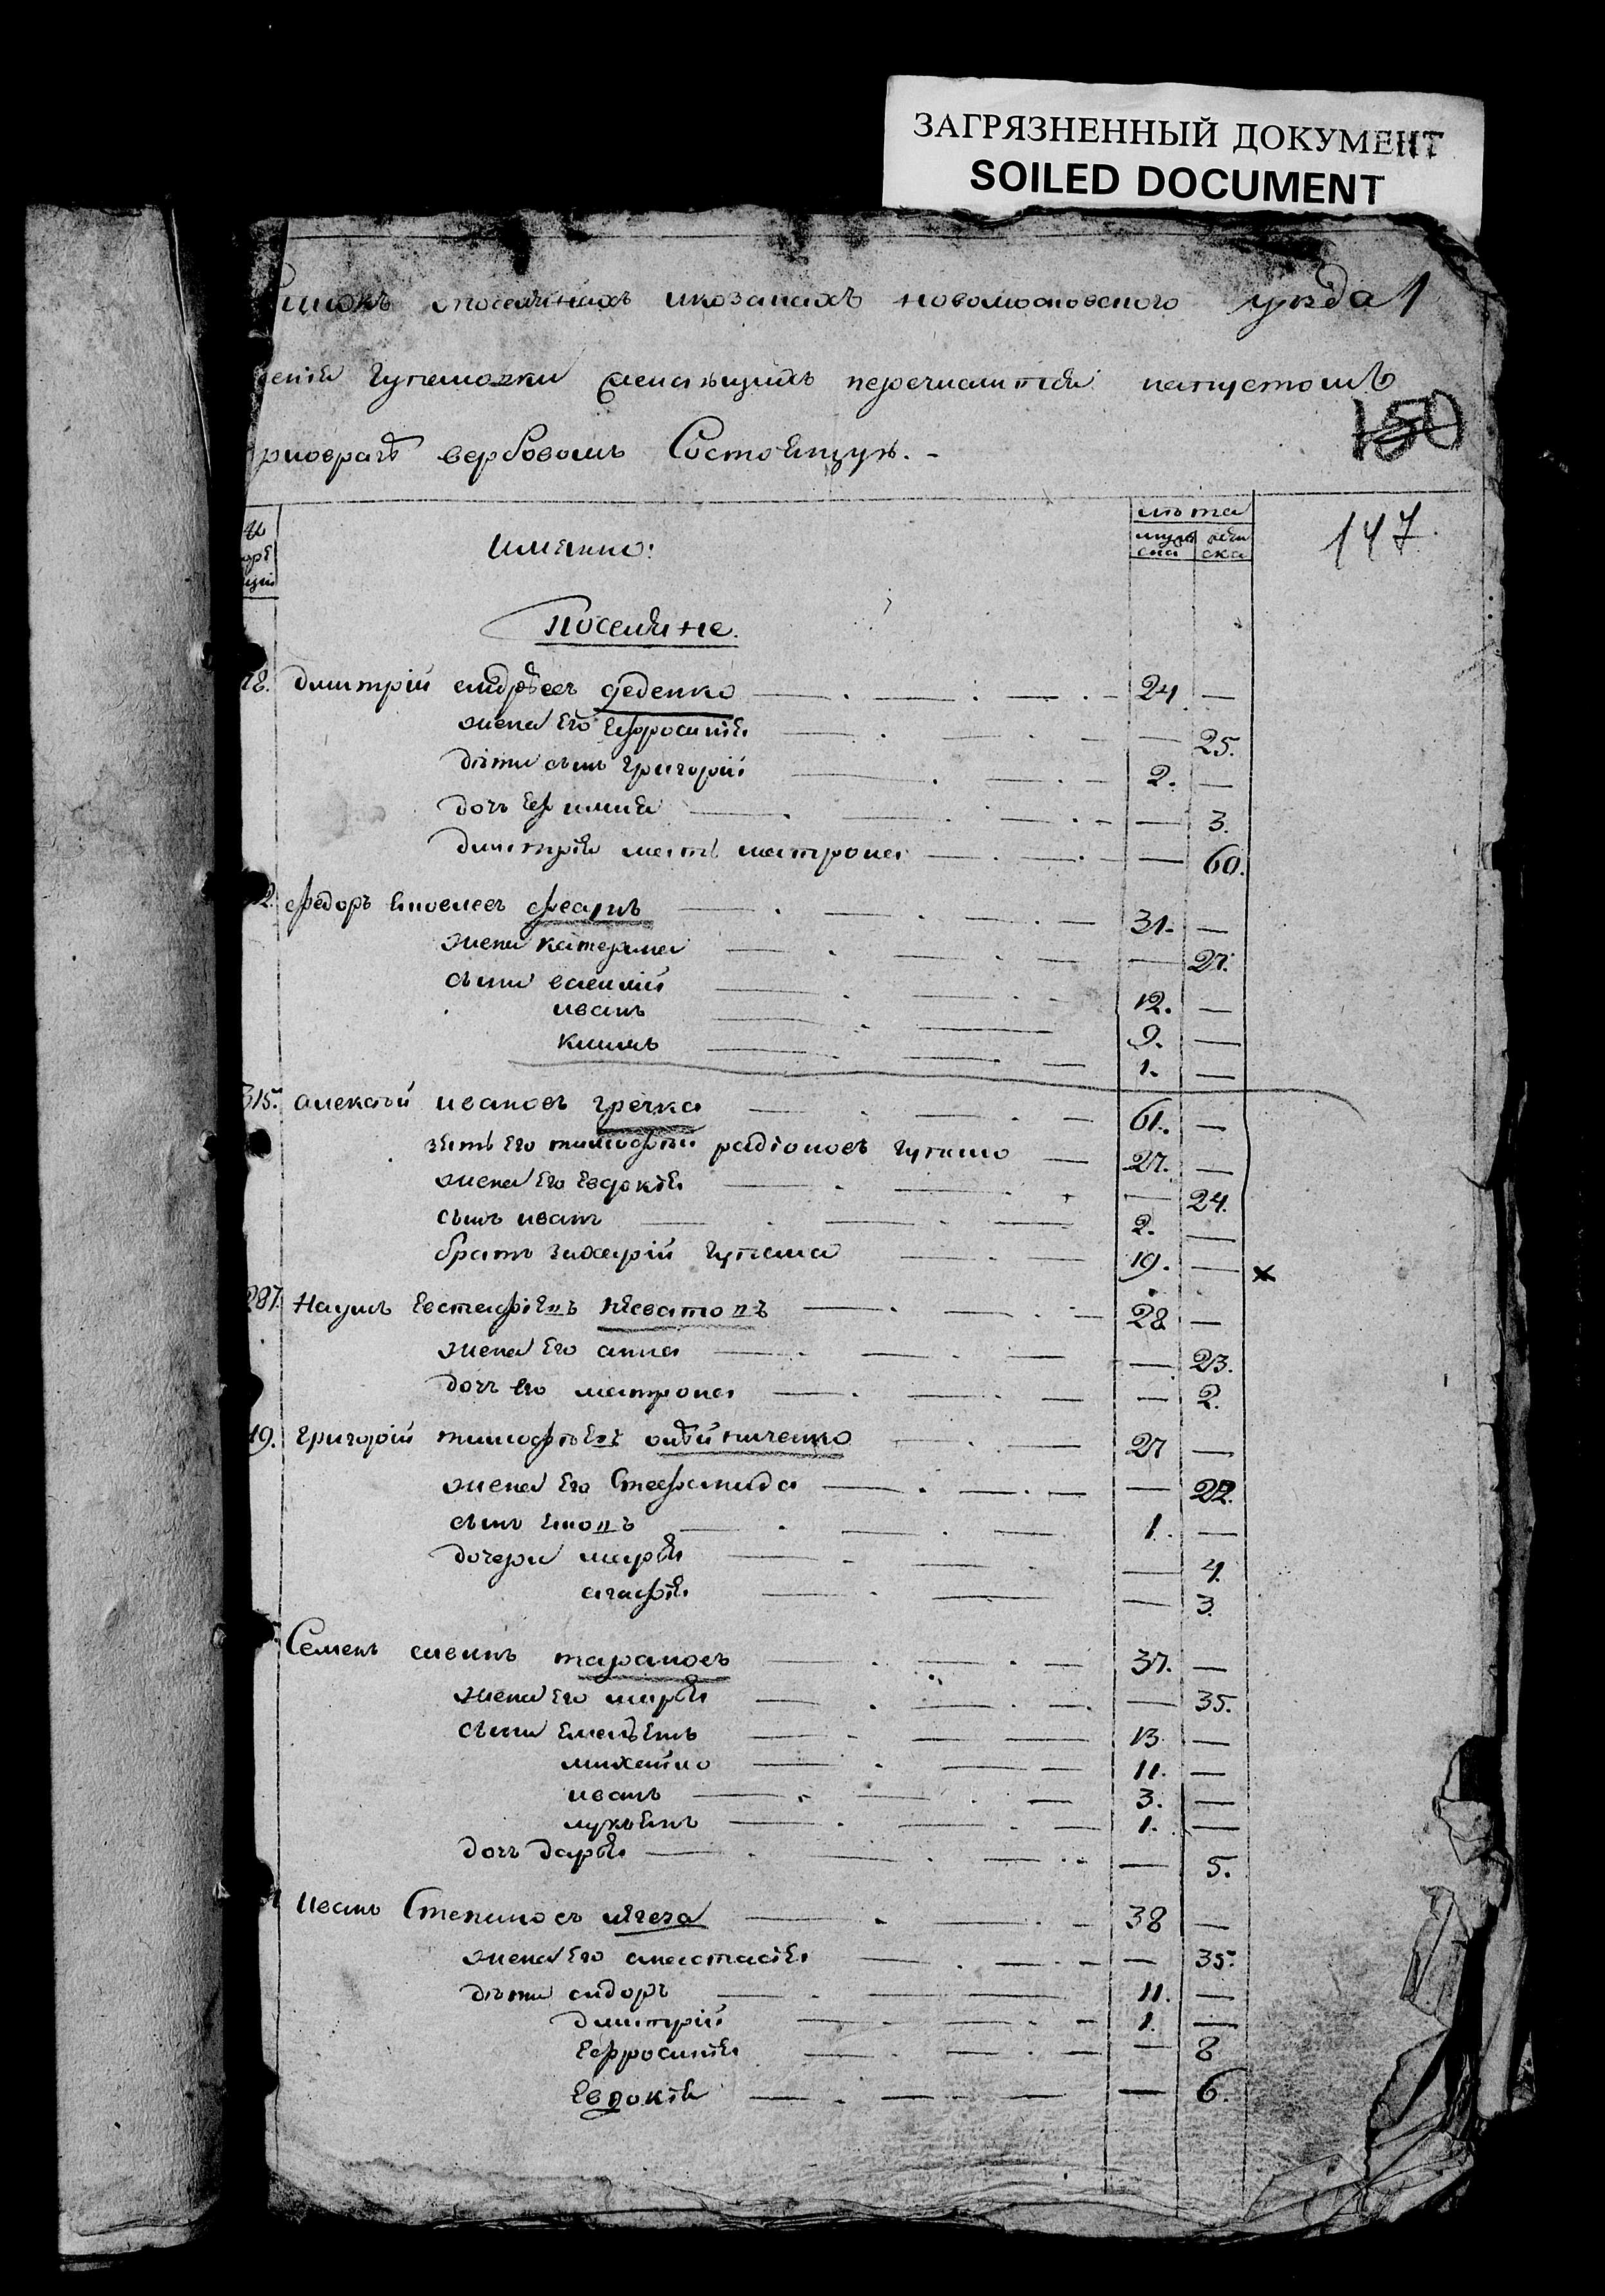 ЗАГРЯЗНЕННЫЙ ДОКУМЕНТ
SOILED DOCUMENT
поселянахъ икозакахъ новомосковского уезда 1
перечислится напустошъ
150
вербовомъ Состоящую. -
147
имянно:
лѣта
муже ска
жен ска
Поселяне.
18. дмитрій андрѣевъ деденко 24 —
жена его Ефросинія — 25.
дѣти сынъ григорій 2. —
дочь — 3.
дмитрія мать матрона — 60.
2. федоръ 31. —
жена катерина — 27.
сыни василій 12. —
иванъ 9. —
климъ 1. —
315. алексѣй ивановъ гречка 61. —
зять его тимофѣй радіоновъ 27. —
жена его Евдокія — 24.
сынъ иванъ 2. —
братъ захарій 19. — x
287. Наумъ Евстафіевъ 28 —
жена его анна — 23.
дочь его матрона — 2.
19. григорій тимофѣевъ 27 —
жена его Стефанида — 22.
сынъ 1. —
дочери марія — 4.
агафія — 3.
Семенъ савинъ тарановъ 37. —
жена его марія — 35.
сыни Емельянъ 13. —
михайло 11. —
иванъ 3. —
лукьянъ 1. —
дочь дарія — 5.
Иванъ Степановъ 38 —
жена его анастасія — 35.
дѣти сидоръ 11. —
дмитрій 1. —
Ефросинія — 8
Евдокія — 6.